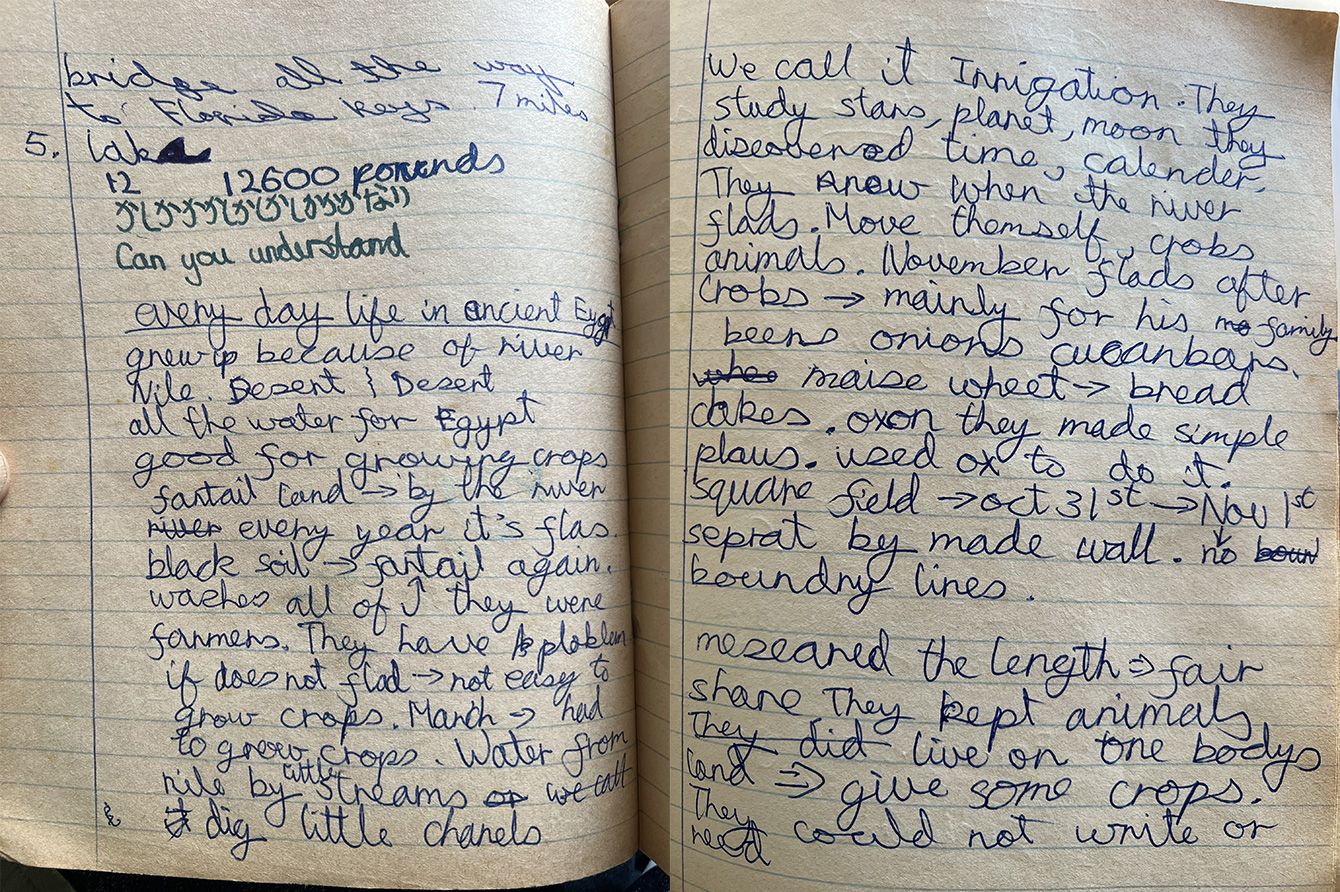 bridge all the way
to Florida keys. 7 miles
5. lake
12 12600 pounds
Can you understand
every day life in ancient Egypt
grew up because of river
Nile. Desert } Desert
all the water for Egypt
good for growing crops
fartail land → by the river
river every year it's flas.
black soil → fartail again.
washes all of ↑ they were
farmers. They have problem
if does not flod → not easy to
grow crops. March → had
to grow crops. Water from
nile by little streams or we call
it dig little chanels
We call it Irrigation. They
study stars, planet, moon they
discovered time, calender.
They knew when the river
flads. Move themself, crobs
animals. November flads after
Crobs → mainly for his family
beens onions
whee maise wheet → bread
cakes. oxon they made simple
plaus. used ox to do it.
square field → oct 31st → Nov 1st
seprat by made wall. no boun
boundry lines.
meseared the length ⇒ fair
share They kept animals
They did live on one bodys
land ⇒ give some crops.
They could not write or
read